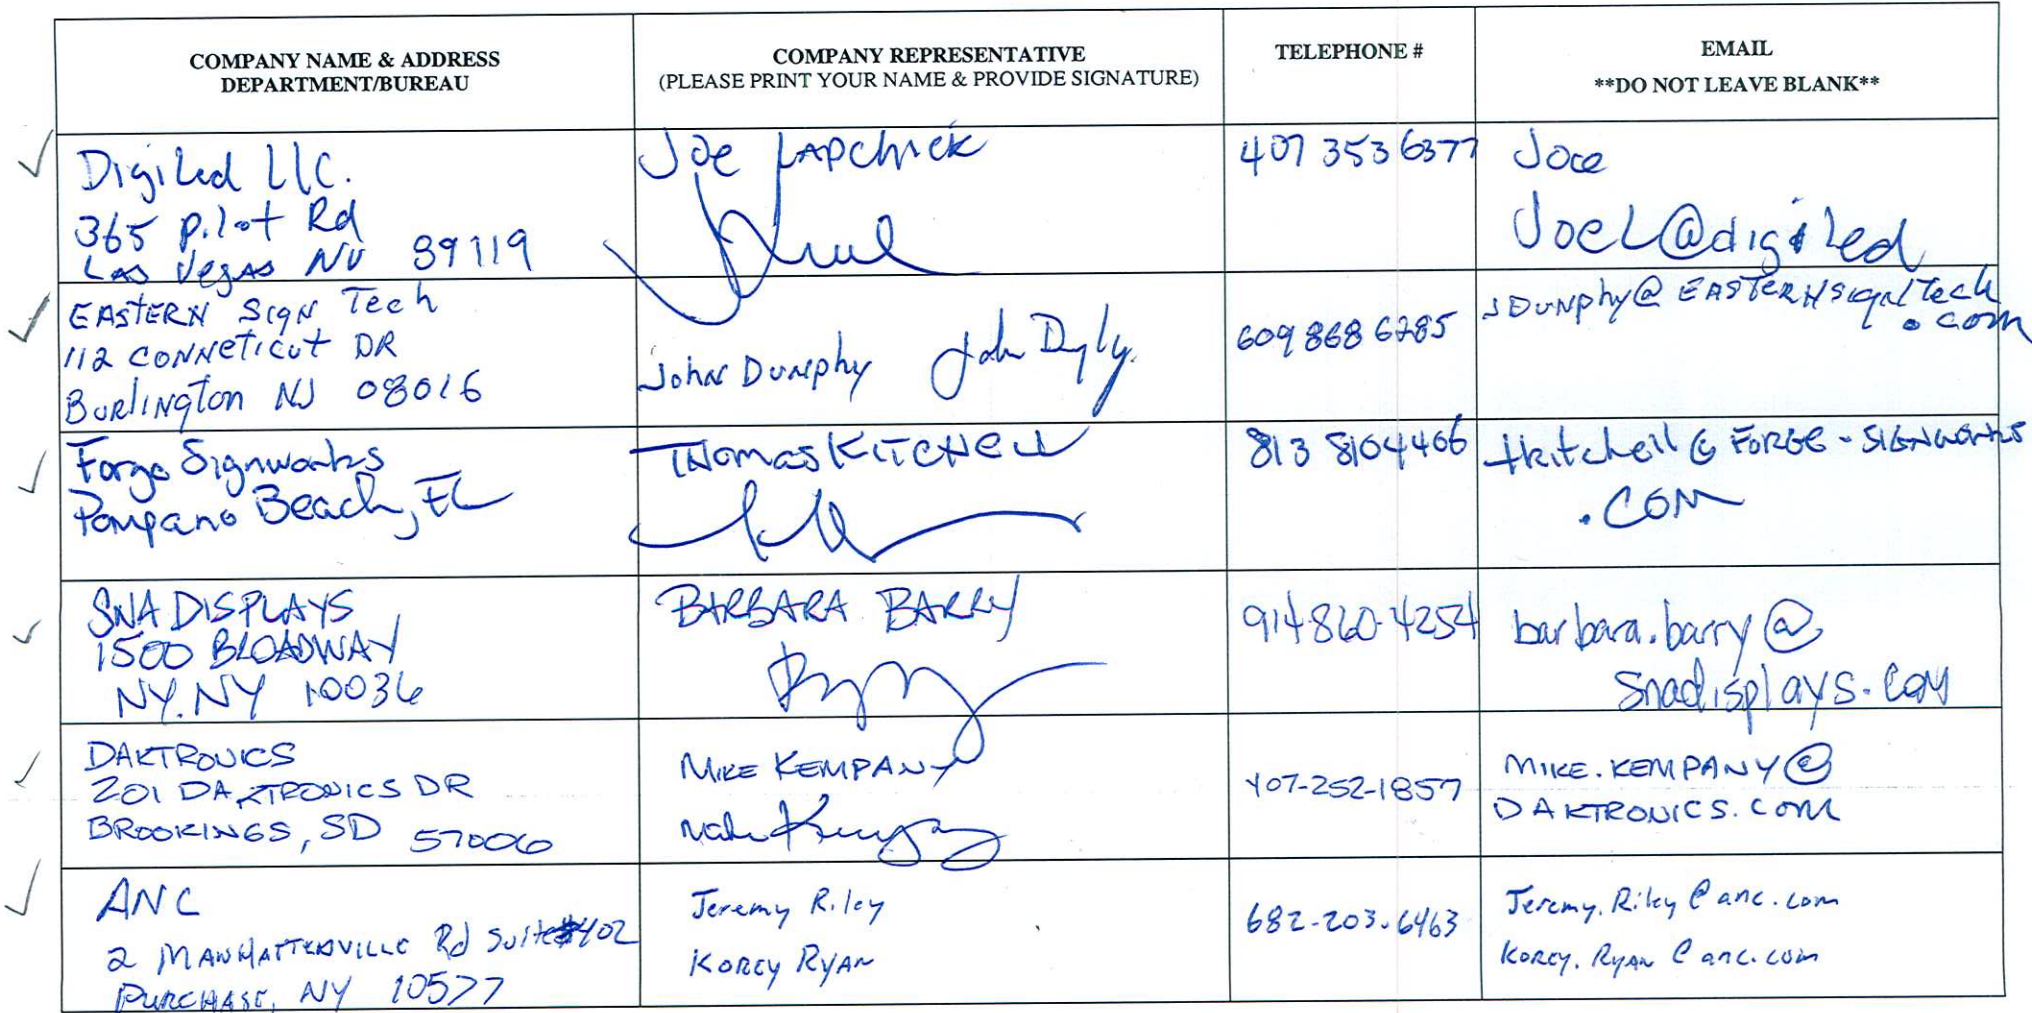 COMPANY NAME & ADDRESS
DEPARTMENT/BUREAU
COMPANY REPRESENTATIVE
(PLEASE PRINT YOUR NAME & PROVIDE SIGNATURE)
TELEPHONE #
EMAIL
**DO NOT LEAVE BLANK**
DigiLed LLC.
365 Pilot Rd
Las Vegas NV 89119
Joe Lapchick
407 353 6377
Joee
JoeL@digiled
EASTERN Sign Tech
112 CONNETICUT DR
Burlington NJ 08016
John Dunphy
609 868 6285
JDunphy@EASTERNSignTech
.com
Forge Signworks
Pompano Beach, FL
Thomas KITCHELL
813 8104466
tkitchell@FORGE-SIGNWORKS
.COM
SNA DISPLAYS
1500 BROADWAY
NY.NY 10036
BARBARA BARRY
914-860-4254
barbara.barry@
snadisplays.com
DAKTRONICS
201 DAKTRONICS DR
BROOKINGS, SD 57006
MIKE KEMPANY
Mike Kempany
407-252-1857
MIKE.KEMPANY@
DAKTRONICS.COM
ANC
2 MANHATTENVILLE Rd Suite #402
PURCHASE, NY 10577
Jeremy Riley
KOREY RYAN
682-203-6463
Jeremy.Riley@anc.com
KOREY.RYAN@anc.com